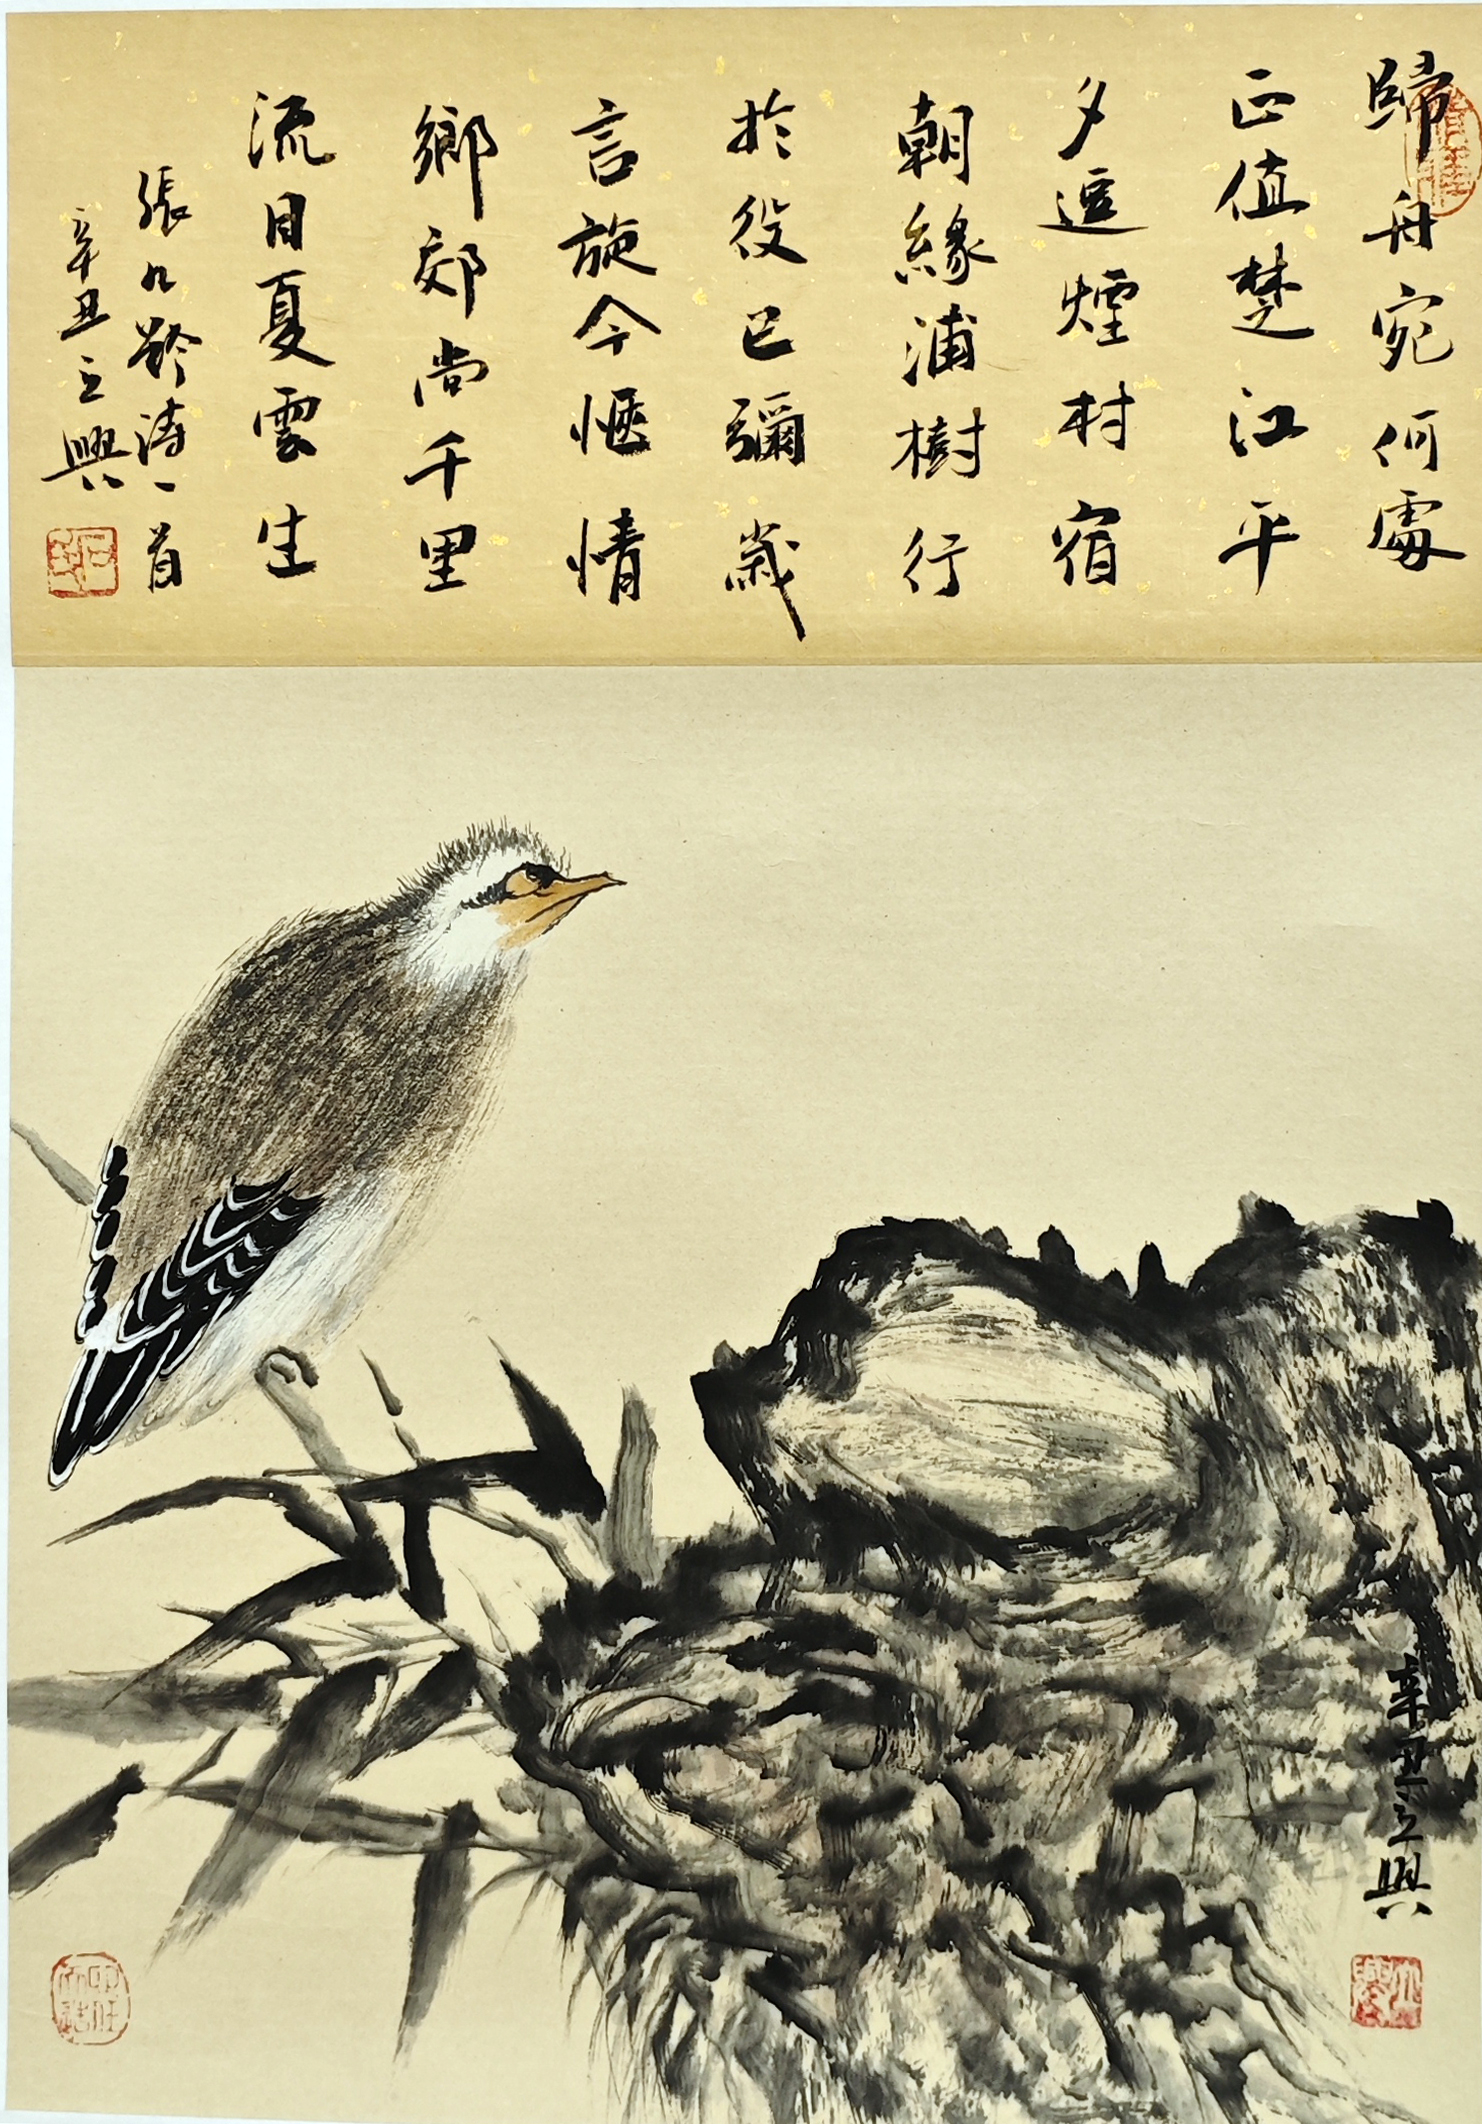 歸舟宛何處
正值楚江平
夕逗煙村宿
朝緣浦樹行
於役已彌歲
言旋今愜情
鄉郊尚千里
流目夏雲生
張九齡詩一首
辛丑立興
辛丑立興
立興